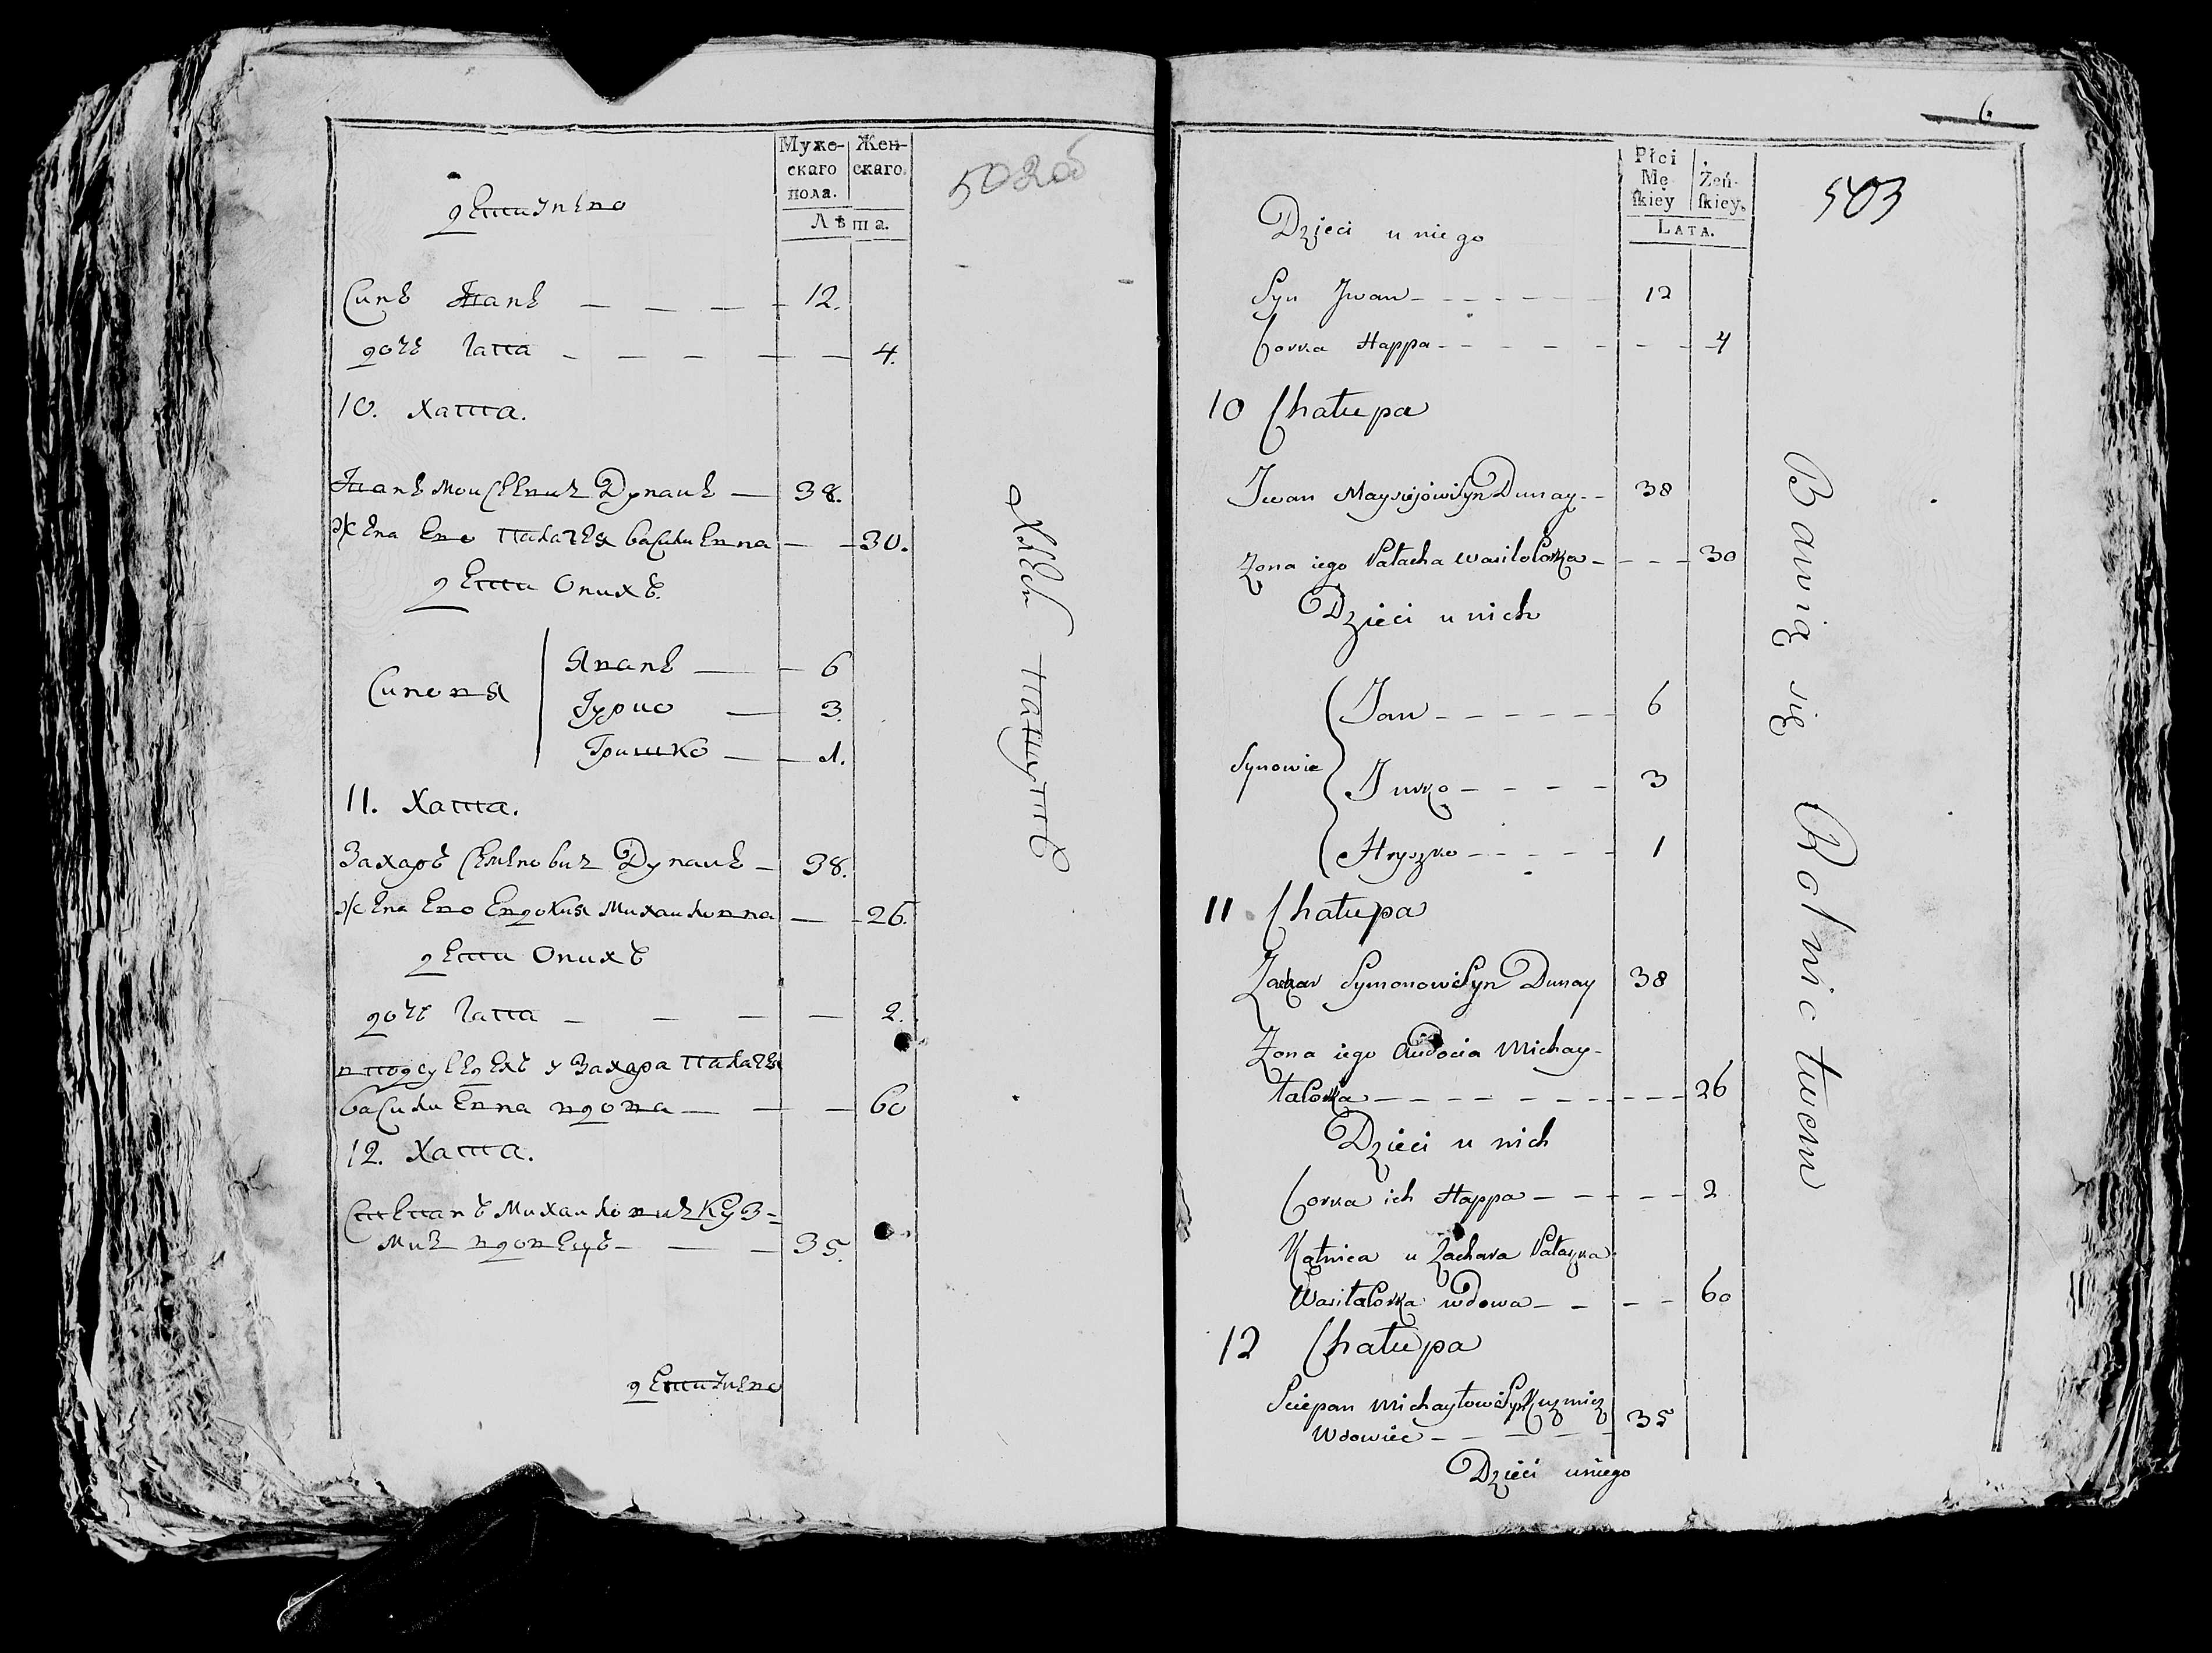 Муже-
скаго
пола.
Жен-
скаго.
Лѣта.
502об
дети унего
Синъ Иванъ — — — — 12.
дочь Гапа — — — — — 4.
10. Хата.
Иванъ Моисеевич Дунаиъ — 38.
жена его Палагея Василиевна — — 30.
дети Онихъ.
Синовя
Яванъ — — 6
Гурко — 3.
Гришко — — 1.
11. Хата.
Захаръ Семенович Дунаиъ — 38.
жена его Евдокия Михаиловна — — 26.
дети Онихъ
дочь Гапа — — — — 2.
в подсуседехъ у Захара Палагея
Василиевна вдова — — — 60
12. Хата.
Степанъ Михаилович Куз=
мич вдовецъ — — — 35.
дети унего
хлебо пашуть
6.
Płci
Mę-
skiey
Żeń-
skiey.
LATA.
503
Dzieci u niego
Syn Jwan — — — — — 12
Corka Happa — — — — — — — 4
10 Chałupa
Jwan Maysiejów Syn Dunay — — 38
Zona iego Pałacha Wasilo Corka — — — — 30
Dzieci u nich
Synowie
Jan — — — — — — 6
Jurko — — — — 3
Hryszko — — — — — 1
11 Chałupa
Zachar Symonow Syn Dunay 38
Zona iego Audocia Michay-
ła Corka — — — — — — — — — — — 26
Dzieci u nich
Corka ich Happa — — — — — 2
Kątnica u Zachara Pałazka
Wasila Corka wdowa — — — — 60
12 Chałupa
Sciepan Michayłow Syn Kuzmicz
Wdowiec — — — — — — 35
Dzieci uniego
Bawią się Rolnictwem